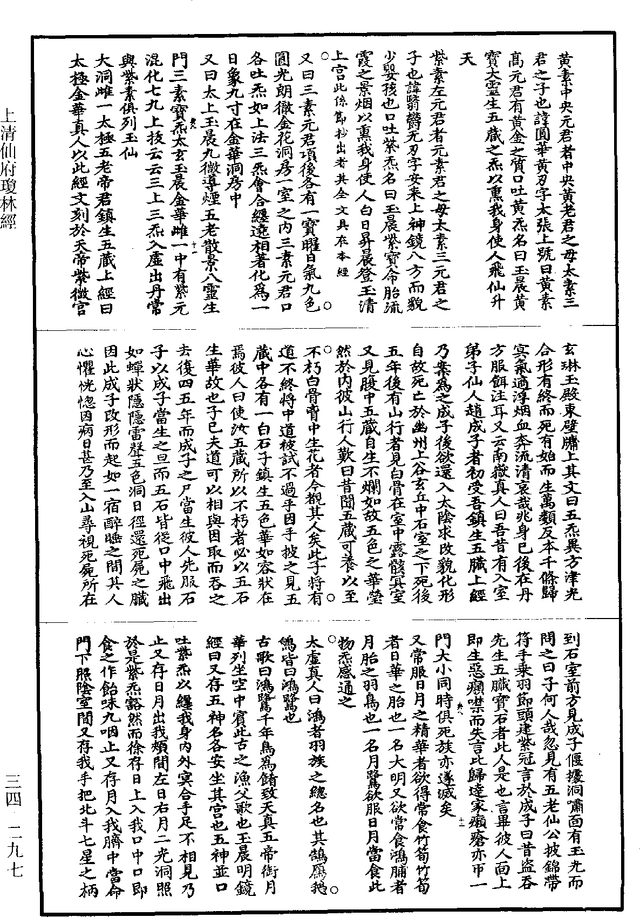 黃素中央元君者中央黃老君之母太素三
君之子也諱圓華黃刃字太張上號曰黃素
高元君有黃金之質口吐黃炁名曰玉晨黃
寶大靈生五藏之炁以熏我身使人飛仙升
天
紫素左元君者元素君之母太素三元君之
子也諱翳鬱无刃字安来上神鏡八方而貌
少嬰孩也口吐紫炁名曰玉晨紫寶命胎流
霞之景烟以熏我身使人白日昇晨登玉清
上宮此係節抄出者其全文具在本經
又曰三素元君項後各有一寶曜日氣九色
圓光朗徹金花洞房一室之内三素元君口
各吐炁如上法三炁會合纏遶相著化爲一
日象九寸在金華洞房中
又曰太上玉晨九微導煙五老散景入靈生
門三素寶炁太玄玉晨金華雌一中有紫元
混化七九上技云云三上三炁入虛出丹常
與紫素俱列玉仙
大洞雌一太極五老帝君鎮生五藏上經曰
太極金華真人以此經文刻於天帝紫微宮
玄琳玉殿東壁牖上其文曰五炁異方津光
合形有終而死有始而生萬類反本千條歸
冥氣適浮烟血奔流清哀哉兆身已後在丹
方服餌注耳又云南嶽真人曰吾昔有入室
弟子仙人趙成子者初受吾鎮生五臟上經
乃案爲之成子後欲還入太陰求改貌化形
自故死亡於幽州上谷玄丘中石室之下死後
五年後有山行者見白骨在室中露骸冥室
又見腹中五藏自生不爛如故五色之華瑩
然於内彼山行人歎曰昔聞五藏可養以至
不朽白骨胷中生花者今覩其人矣此子將有
道不終將中道被試不過乎因手披之見五
藏中各有一白石子鎮生五色華如容狀在
焉彼人曰使汝五藏所以不朽者必以五石
生華故也子已失道可以相與因取而吞之
去後四五年而成子之尸當生彼人先服石
子以成子當生之旦而五石皆從口中飛出
如蟬狀隱隱雷聲五色洞日徑還死屍之臟
因此成子改形而起如一宿醉睡之間其人
心懼恍惚因病日甚乃至入山尋視死屍所在
到石室前方見成子偃據洞嘯面有玉光而
問之曰子何人哉忽見有五老仙公披錦帶
符手乗羽節頭建紫冠言於成子曰昔盗吞
先生五臟寶石者此人是也言畢彼人面上
即生惡癩噤而失言比歸達家癩瘡亦帀一
門大小同時俱死族亦遂滅矣
又常服日月之精華者欲得常食竹筍竹筍
者日華之胎也一名大明又欲常食鴻脯者
月胎之羽鳥也一名月鷺欲服日月當食此
物炁感通之
太虛真人曰鴻者羽族之總名也其鵠鴈鵝
鴈皆曰鴻鷺也
古歌曰鴻鷺千年鳥爲餚致天真五帝銜月
華列坐空中賓此古之漁父歌也玉晨明鏡
經曰又存五神名各安坐其宫也五神並口
吐紫炁以纏我身内外冥合手足不相見乃
止又存日月出我頰間左日右月二光洞照
於是紫炁豁然而徐存日上入我口中口即
食之作飴味九咽止又存月入我臍中當命
門下照陰室間又存我手把北斗七星之柄
上清仙府瓊林經
三四·二九七